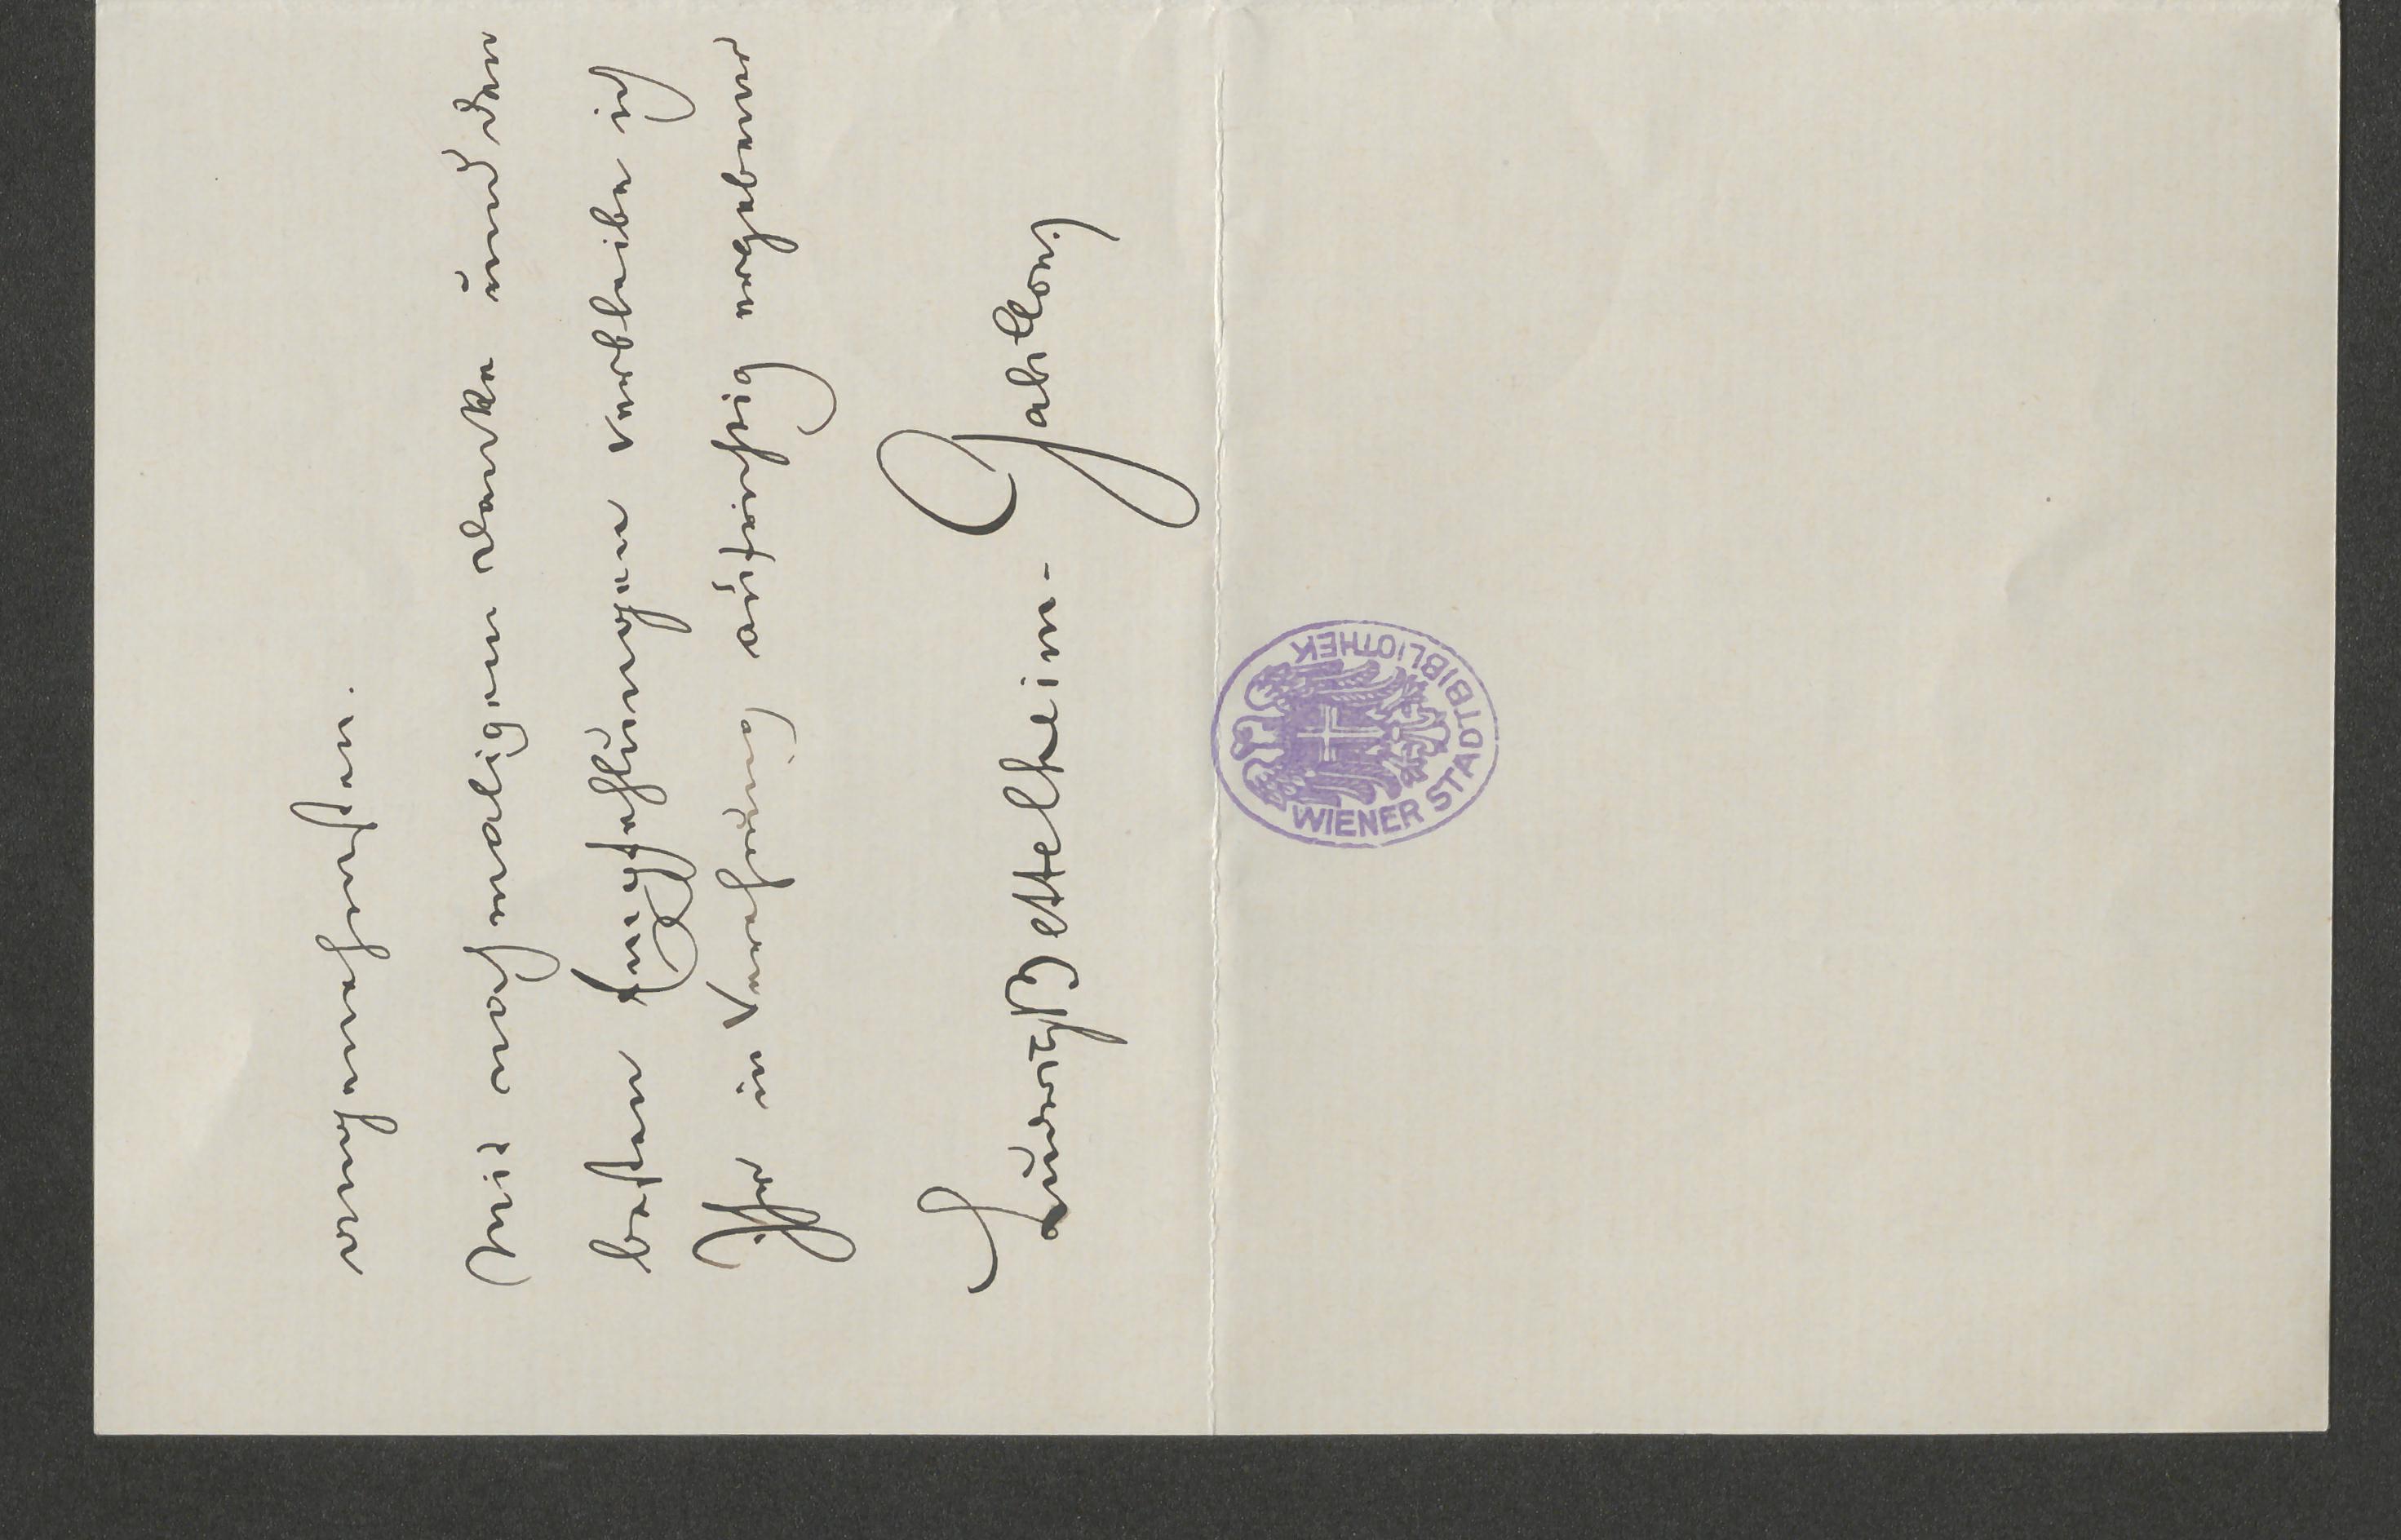 angenehmsten.
Mit nochmaligem Danke und den
besten Empfehlungen verbleibe ich
Ihr in Verehrung aufrichtig ergebener
Ludwig Bettelheim-Gabillon
WIENER STADTBIBLIOTHEK